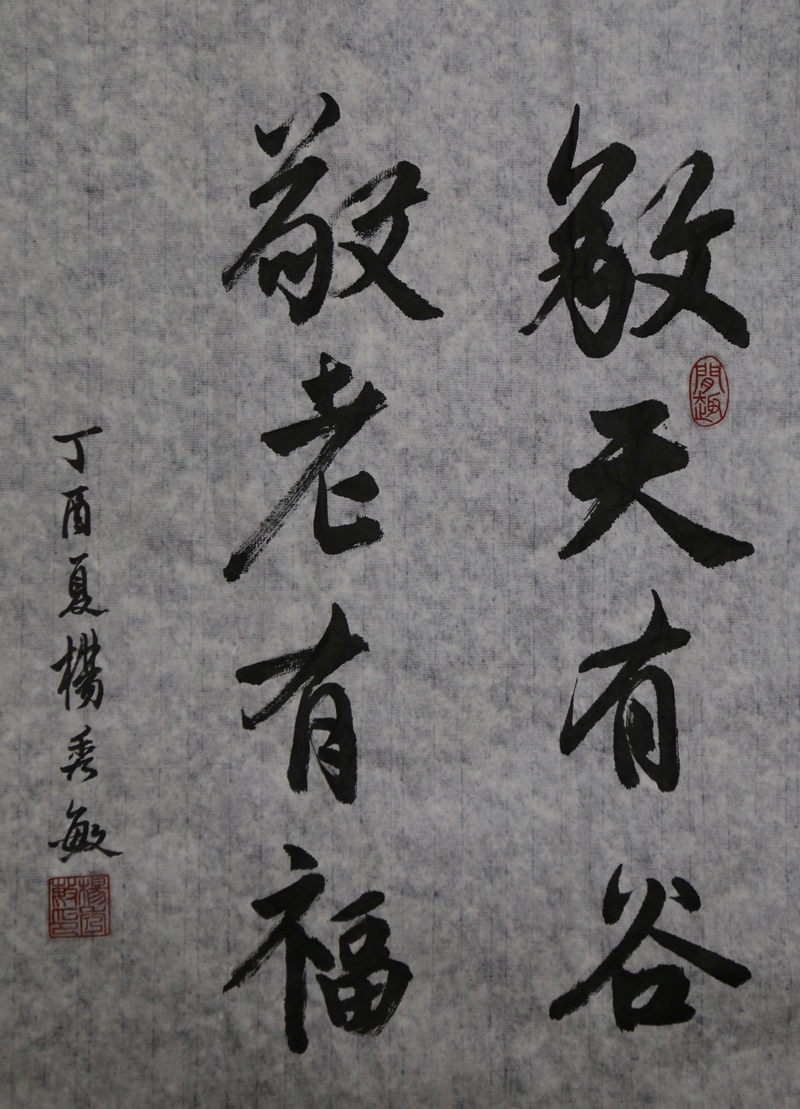 敬天有谷
敬老有福
丁酉夏楊秀敏
閒趣
楊秀敏印